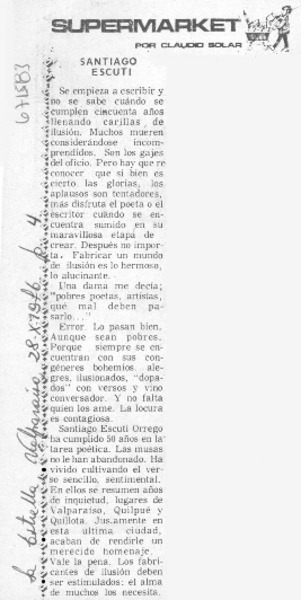 SUPERMARKET
POR CLAUDIO SOLAR
SANTIAGO
ESCUTI
Se empieza a escribir y
no se sabe cuándo se
cumplen cincuenta años
llenando carillas de
ilusión. Muchos mueren
considerándose incom-
prendidos. Son los gajes
del oficio. Pero hay que re
conocer que si bien es
cierto las glorias, los
aplausos son tentadores,
más disfruta el poeta o el
escritor cuando se en-
cuentra sumido en su
maravillosa etapa de
crear. Después no impor-
ta. Fabricar un mundo
de ilusión es lo hermoso,
lo alucinante.
Una dama me decía;
"pobres poetas, artistas,
qué mal deben pa-
sarlo..."
Error. Lo pasan bien.
Aunque sean pobres.
Porque siempre se en-
cuentran con sus con-
géneres bohemios, ale-
gres, ilusionados, "dopa-
dos" con versos y vino
conversador. Y no falta
quien los ame. La locura
es contagiosa.
Santiago Escuti Orrego
ha cumplido 50 años en la
tarea poética. Las musas
no le han abandonado. Ha
vivido cultivando el ver-
so sencillo, sentimental.
En ellos se resumen años
de inquietud, lugares de
Valparaíso, Quilpué y
Quillota. Jus.amente en
esta última ciudad,
acaban de rendirle un
merecido homenaje.
Vale la pena. Los fabri-
cantes de ilusión deben
ser estimulados: el alma
de muchos los necesita.
La Estrella, Valparaíso, 28-X-1976 p. 4
671583